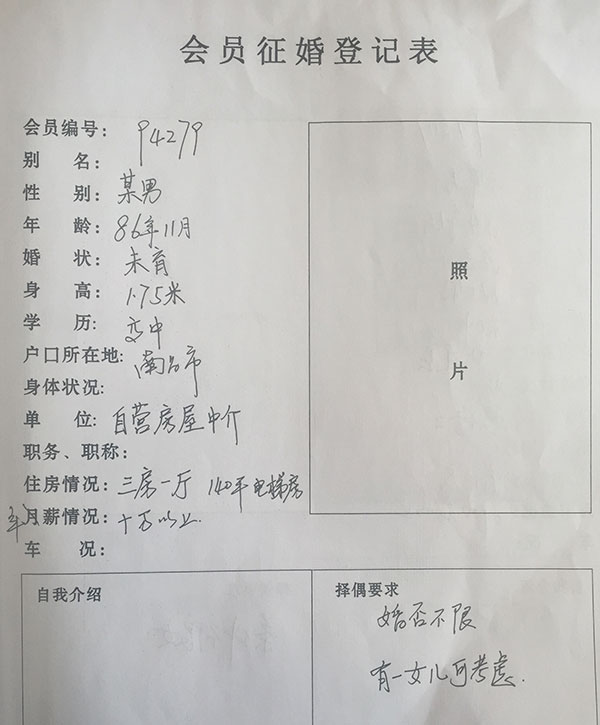 会员征婚登记表
会员编号: 94279
别 名:
性 别: 某男
年 龄: 86年11月
婚 状: 未育
身 高: 1.75米
学 历: 高中
户口所在地: 南昌市
身体状况:
单 位: 自营房屋中介
职务、职称:
住房情况: 三房一厅 140平电梯房
年月薪情况: 十万以上.
车 况:
照
片
自我介绍
择偶要求
婚否不限
有一女儿可考虑.